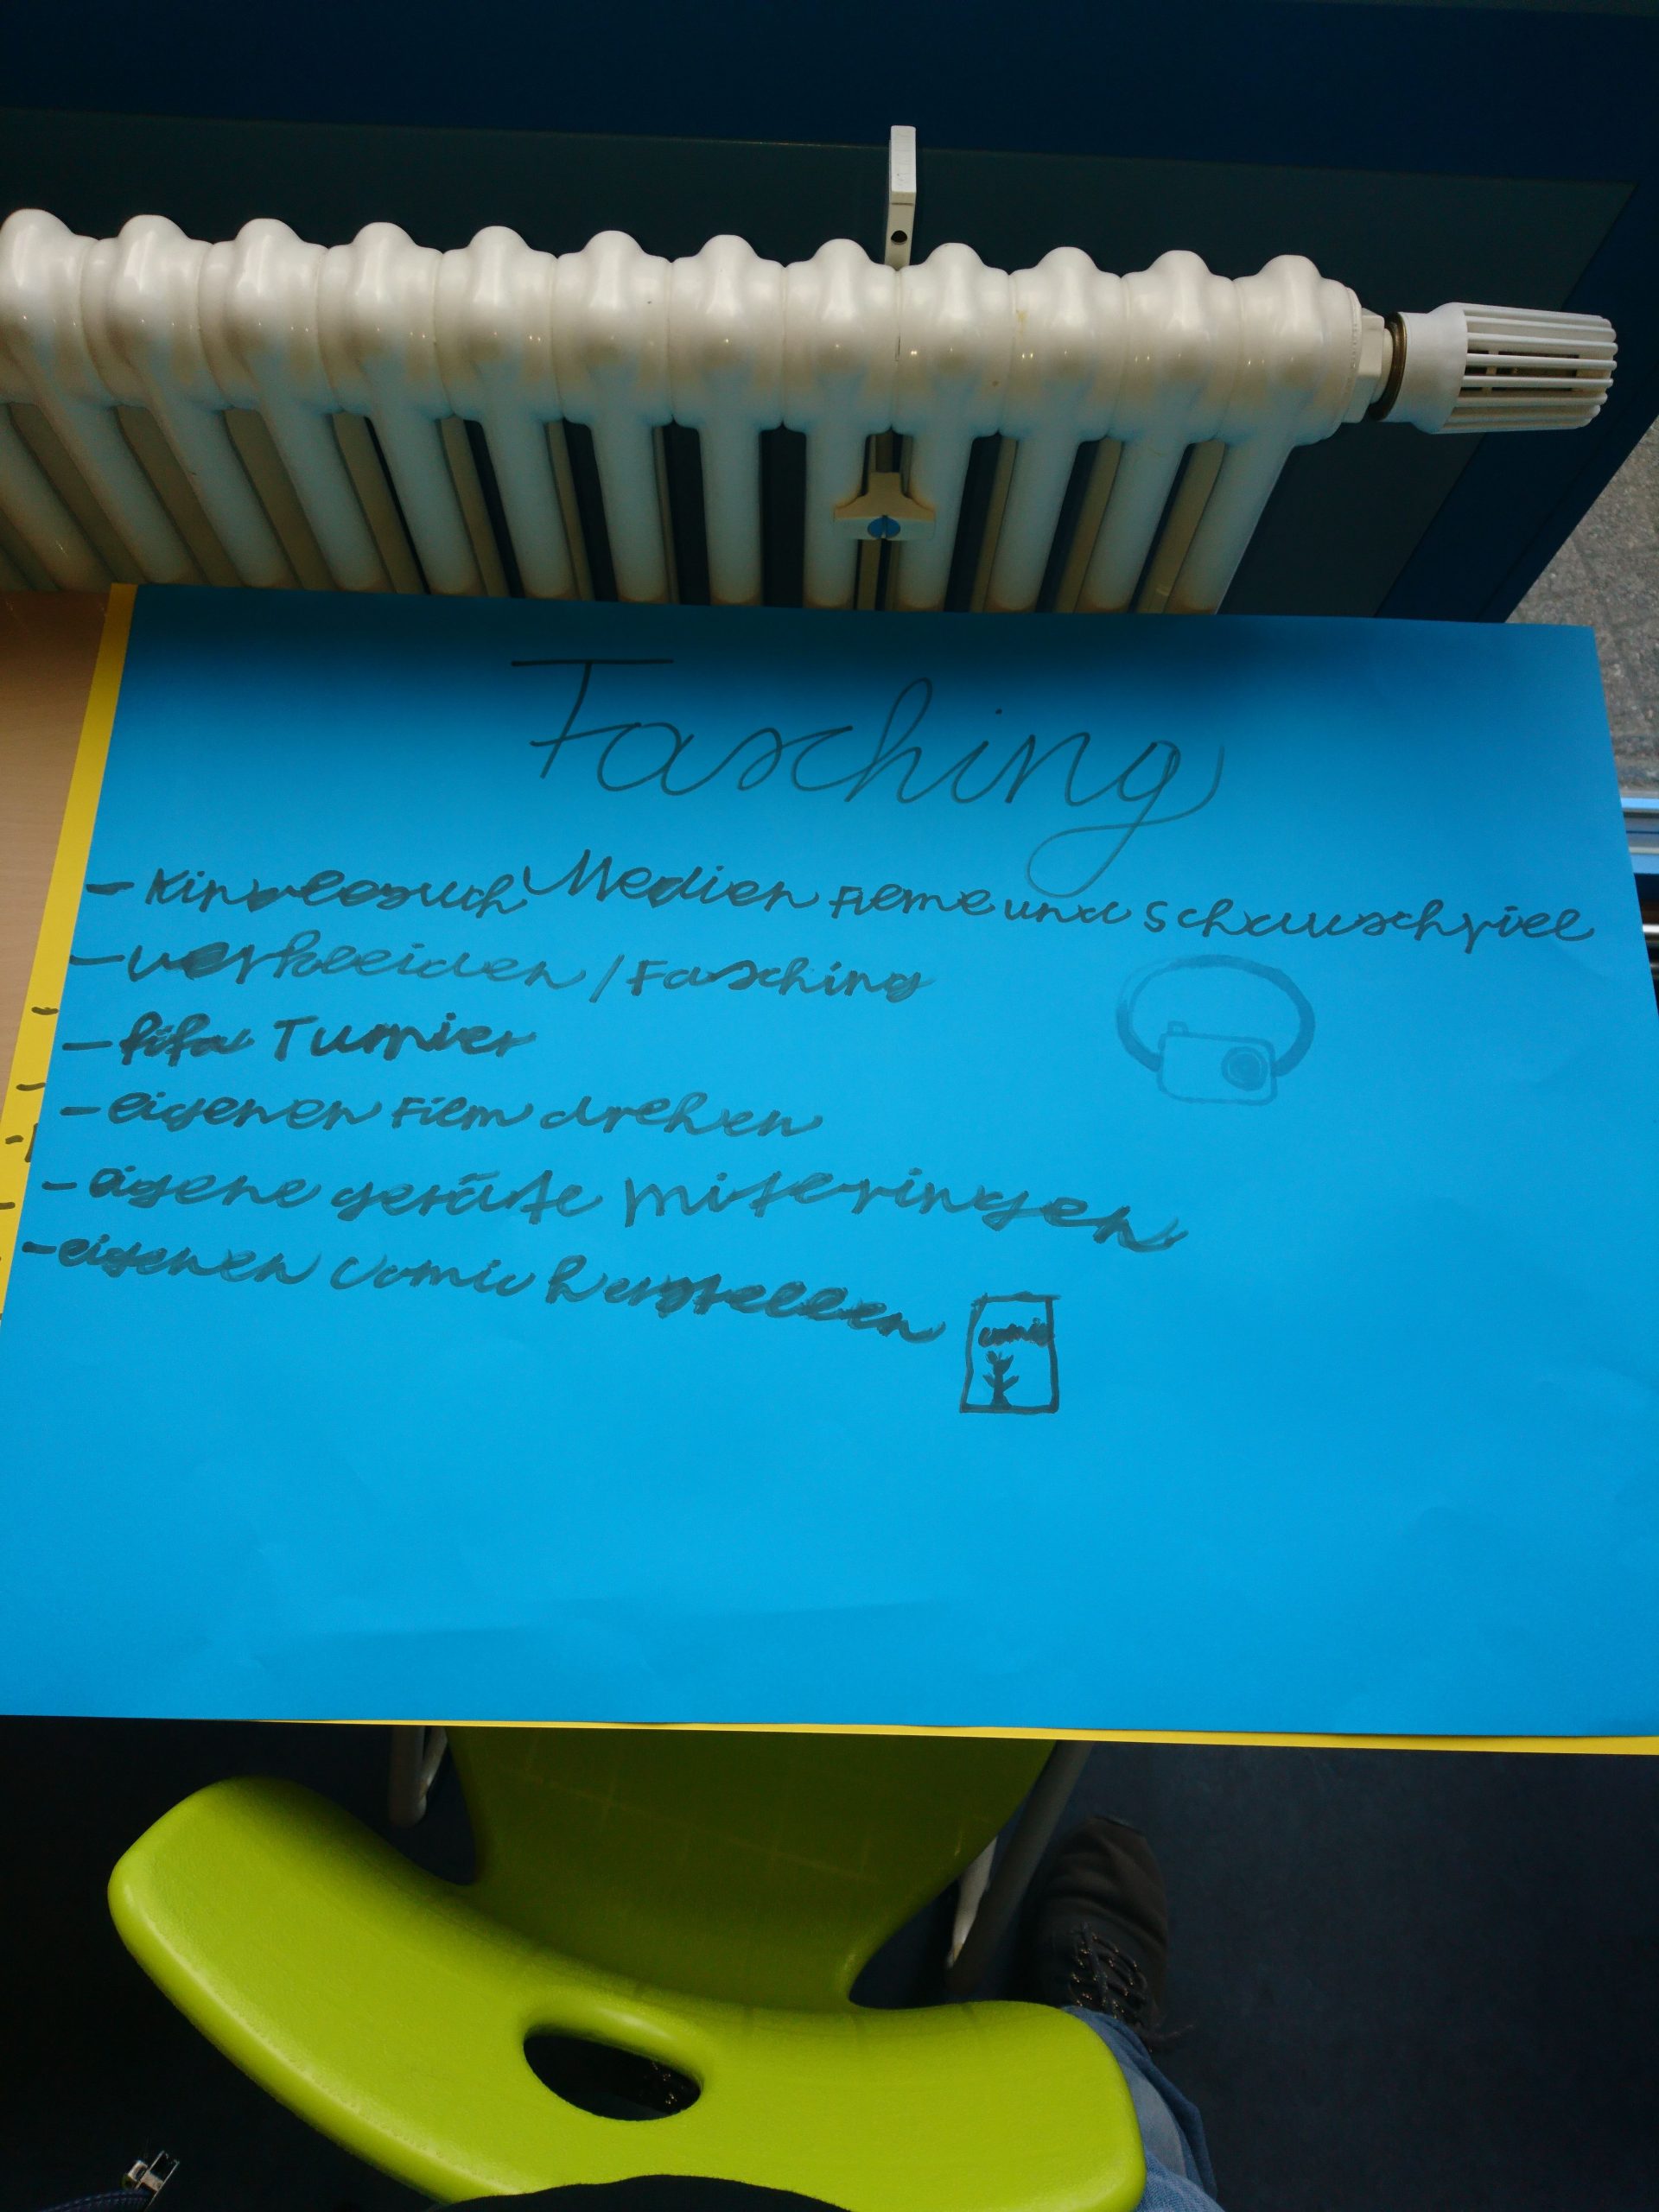 Fasching
- Kinobesuch Medien Filme und Schauschpiel
- verkleiden / Fasching
- fifa Turnier
- eigenen Film drehen
- eigene geräte mitbringen
- eigenen Comic herstellen
comic